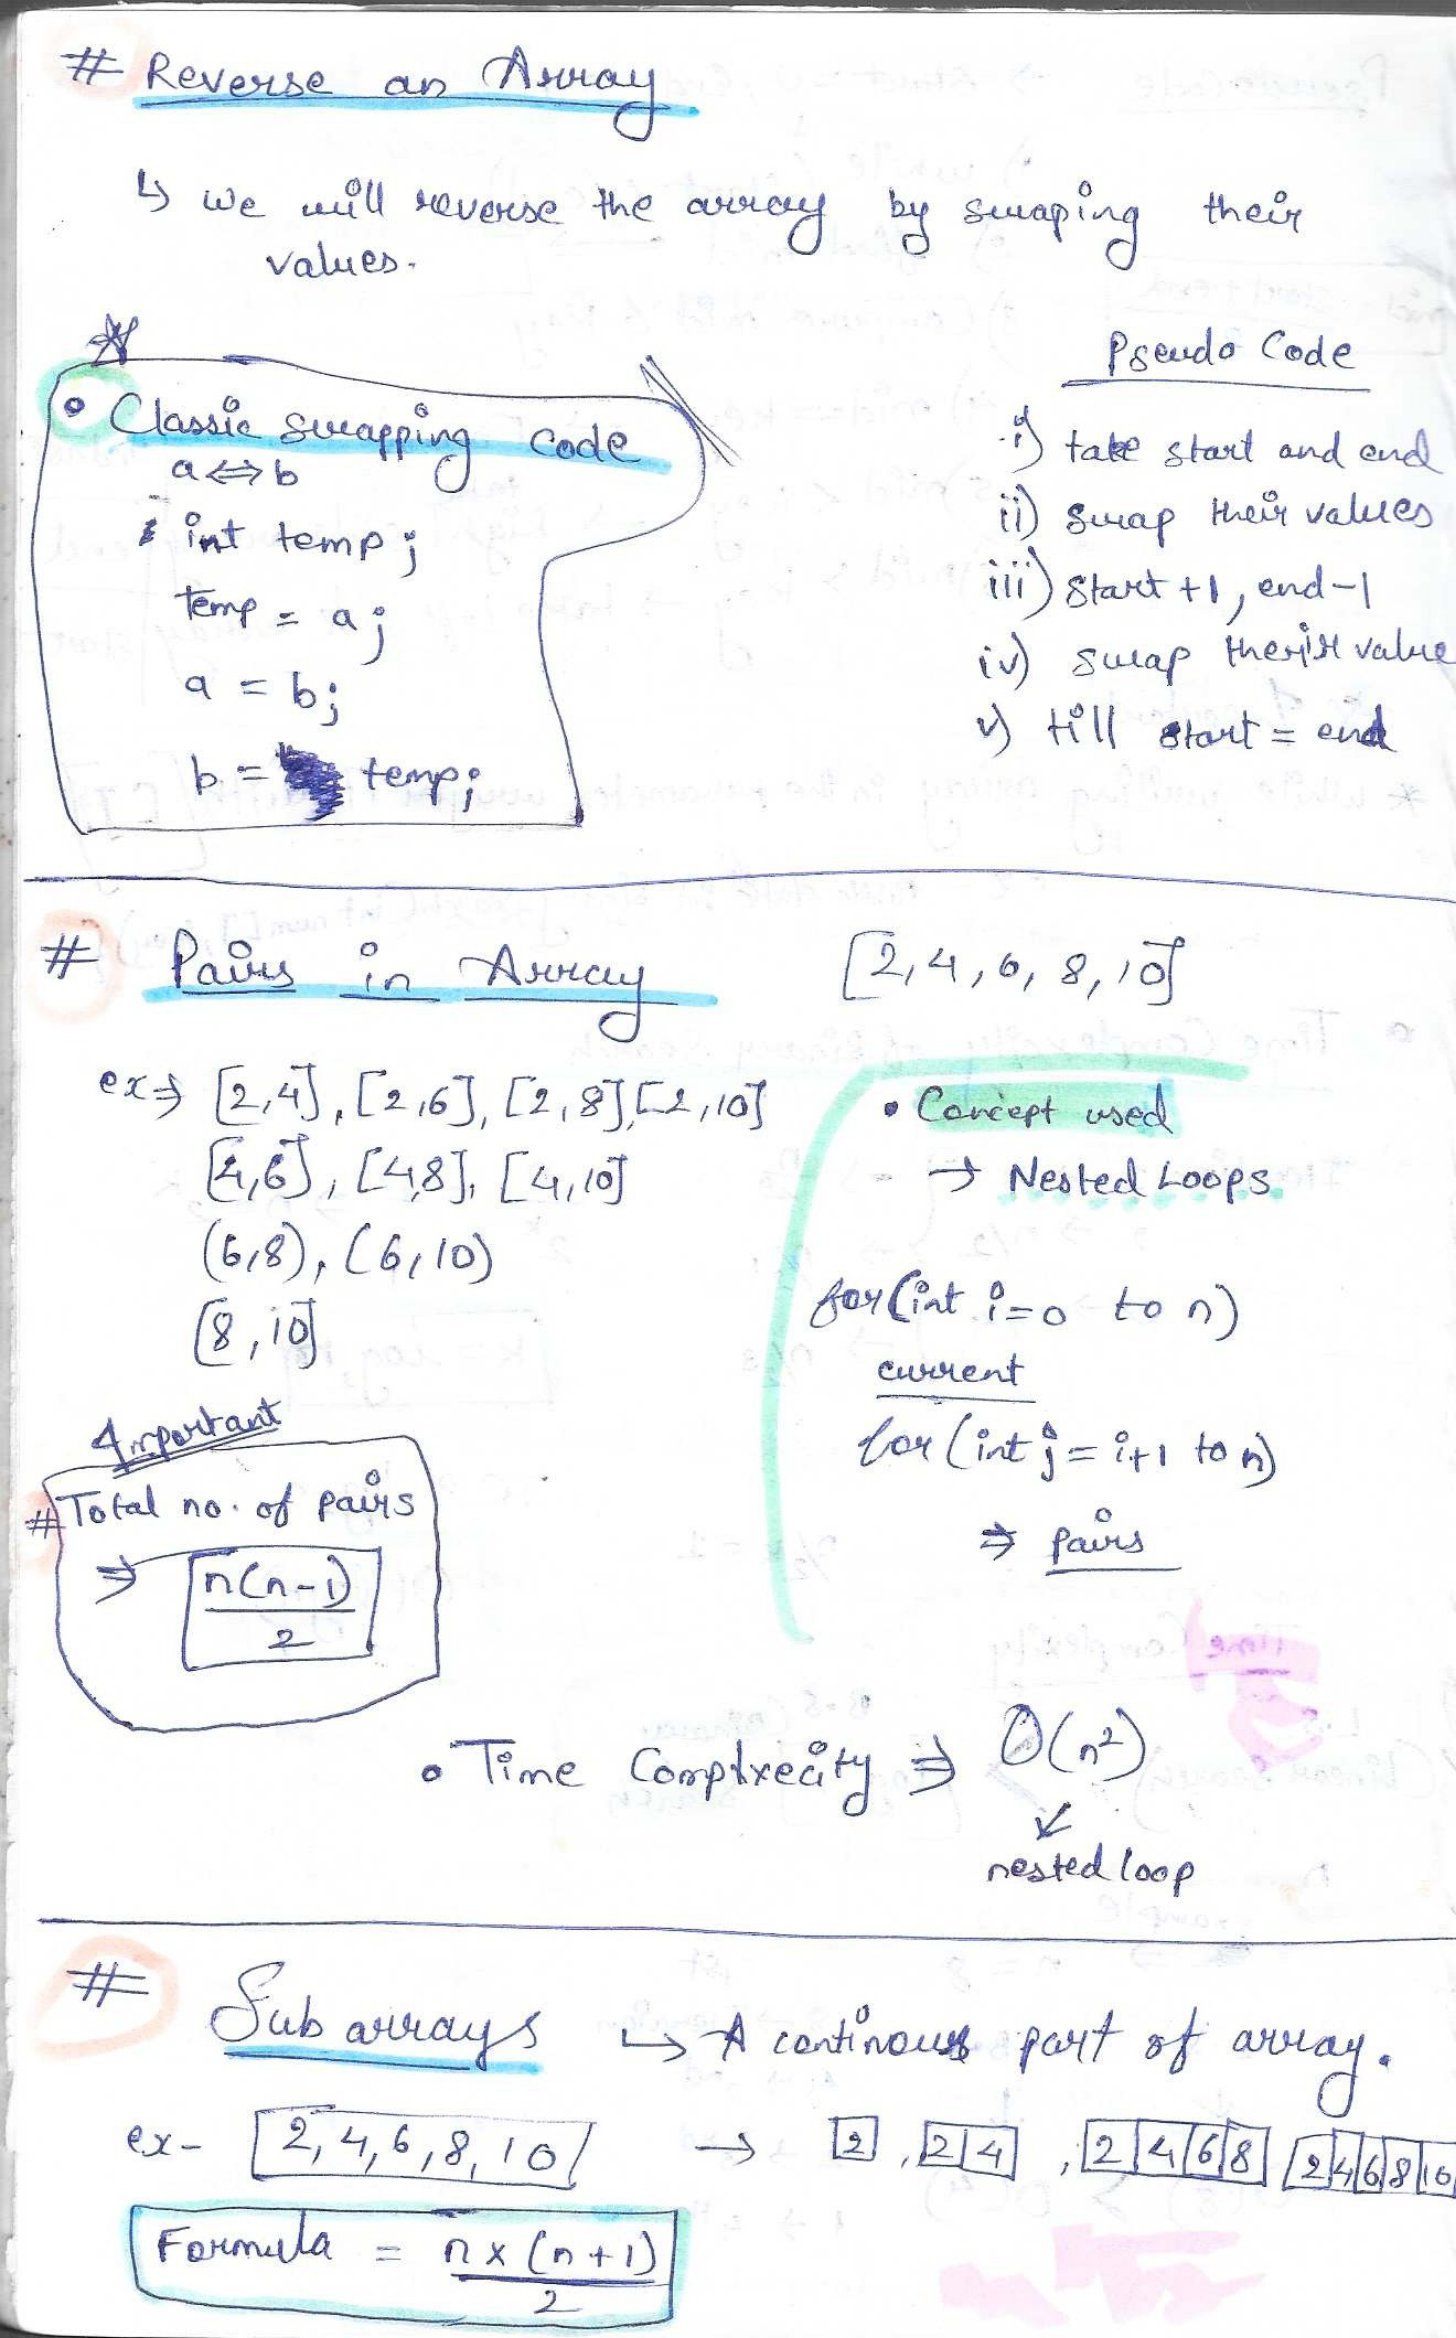 # Reverse an Array
↳ we will reverse the array by swaping their
values.
• Classic swapping code
a ⇔ b
int temp;
temp = a;
a = b;
b = temp;
Pseudo Code
i) take start and end
ii) swap their values
iii) start +1, end-1
iv) swap their value
v) till start = end
# Pairs in Array [2, 4, 6, 8, 10]
ex ⇒ [2,4], [2,6], [2,8], [2,10]
[4,6], [4,8], [4,10]
(6,8), (6,10)
[8,10]
Important
# Total no. of pairs
⇒ n(n-1)
2
• Concept used
→ Nested Loops.
for(int i=0 to n)
current
for(int j = i+1 to n)
⇒ pairs
• Time Complxecity ⇒ O(n²)
↙
nested loop
# Sub arrays ↳ A continous part of array.
ex- [2, 4, 6, 8, 10] → 2 , 2|4 , 2|4|6|8 2|4|6|8|10
Formula = n x (n+1)
2